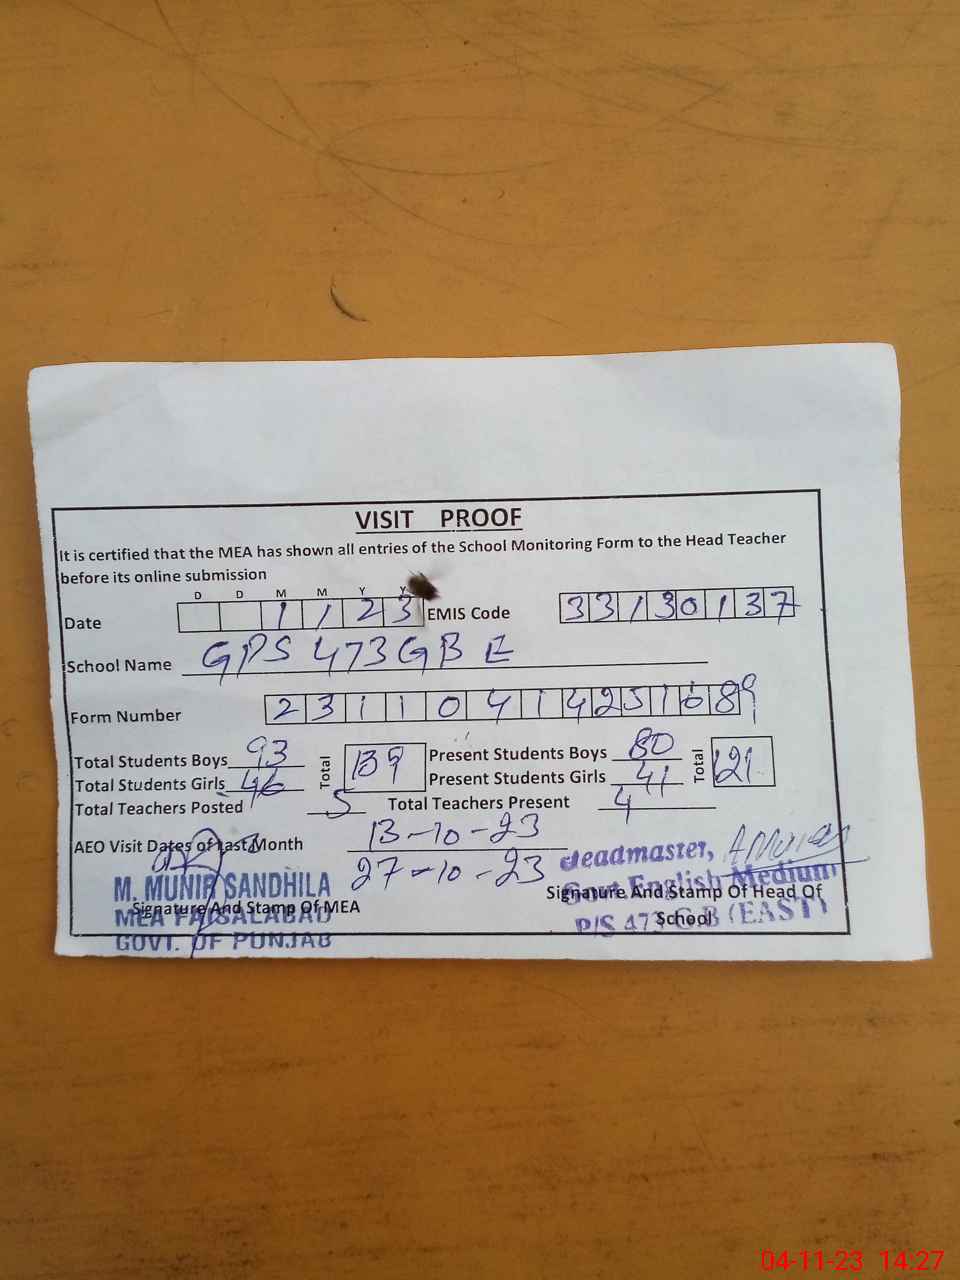 VISIT PROOF
It is certified that the MEA has shown all entries of the School Monitoring Form to the Head Teacher
before its online submission
D D M M Y Y
Date 1 1 2 3 EMIS Code 33130137
School Name GPS 473 GB E
Form Number 23110414251689
Total Students Boys 93 Total 139 Present Students Boys 80 Total 121
Total Students Girls 46 Present Students Girls 41
Total Teachers Posted 5 Total Teachers Present 4
AEO Visit Dates of Last Month 13-10-23
27-10-23
Headmaster,
M. MUNIR SANDHILA Govt. English Medium
Signature And Stamp Of MEA Signature And Stamp Of Head Of
MEA FAISALABAD School
GOVT. OF PUNJAB P/S 473 G.B (EAST)
04-11-23 14:27